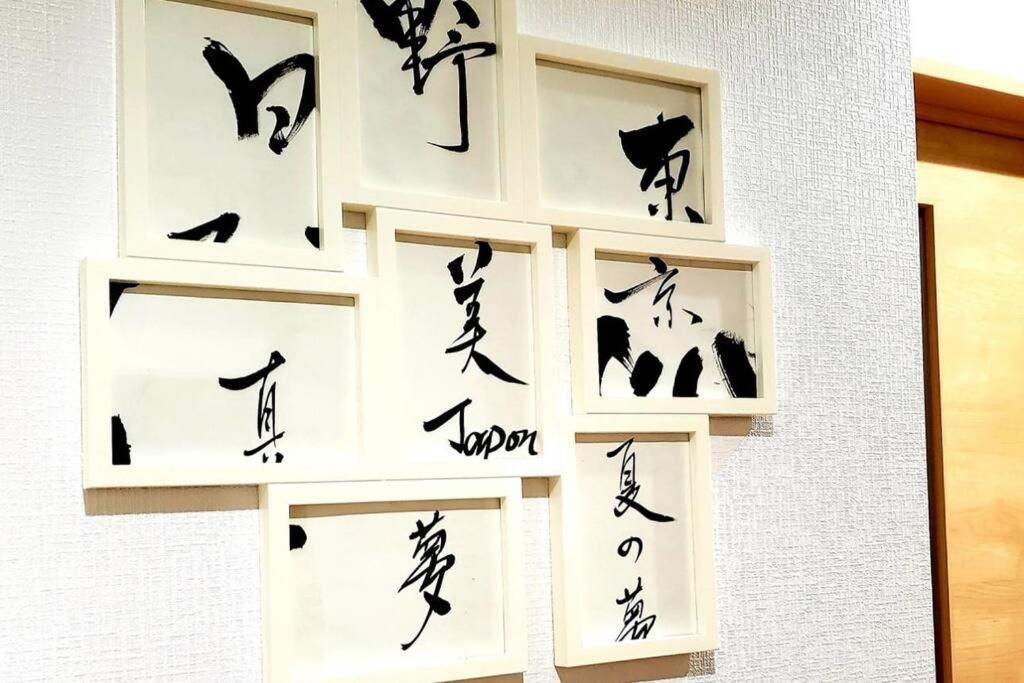 日
野
東
京
真
美
Japan
夢
夏の